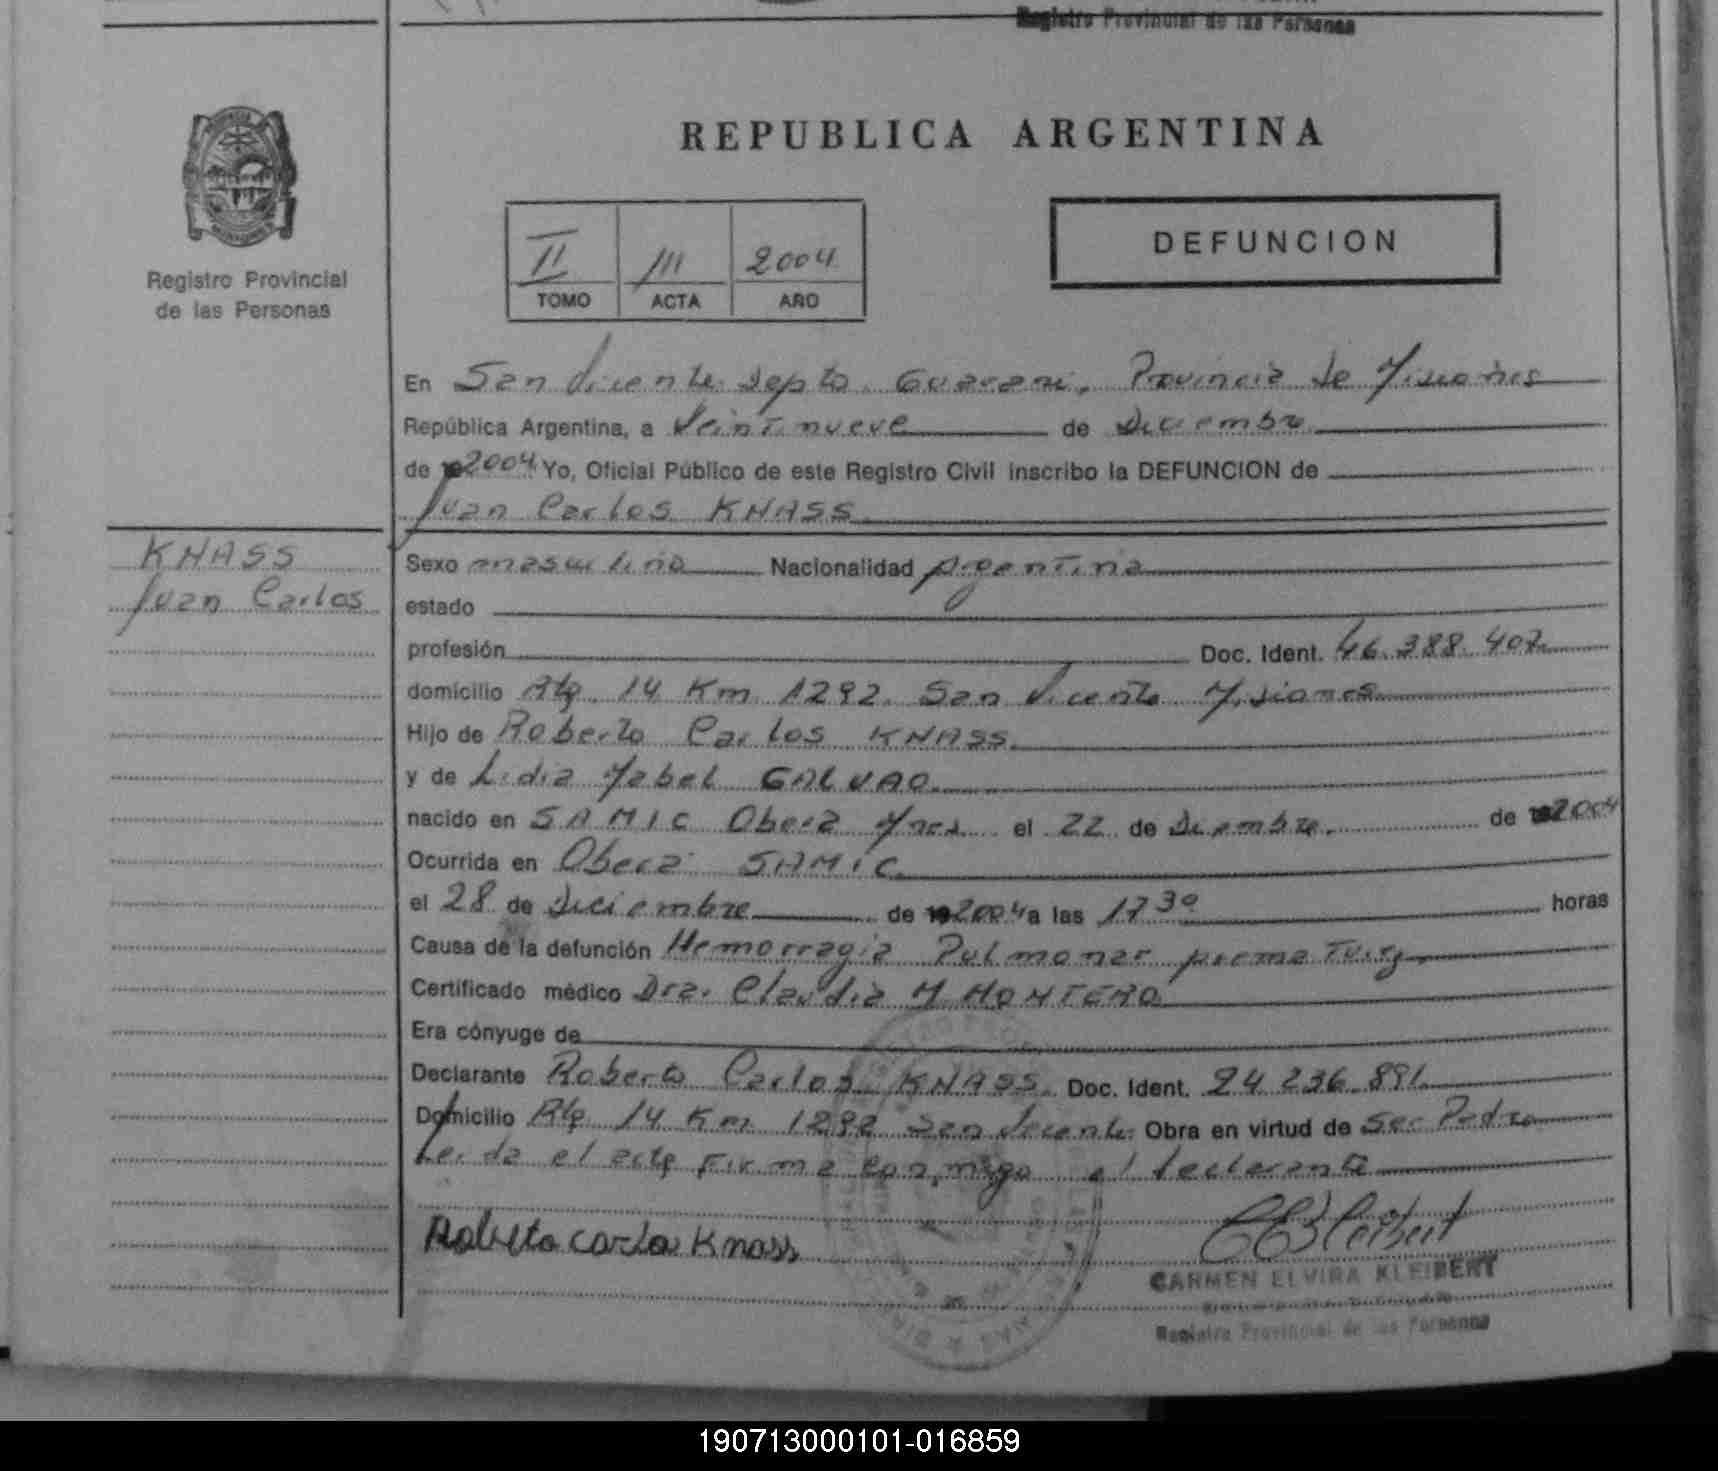 Registro Provincial de las Personas
REPUBLICA ARGENTINA
DEFUNCION
II 111 2004
TOMO ACTA AÑO
Registro Provincial
de las Personas
En San Vicente Depto. Guarani, Provincia de Misiones
República Argentina, a Veintinueve de Diciembre
de 2004 Yo, Oficial Público de este Registro Civil inscribo la DEFUNCION de
Juan Carlos KNASS
KNASS
Juan Carlos
Sexo masculino Nacionalidad Argentina
estado
profesión Doc. Ident. 46.388.407
domicilio Rta 14 Km 1292. San Vicente Misiones
Hijo de Roberto Carlos KNASS
y de Lidia Mabel GALVAO
nacido en SAMIC Obera Mnes el 22 de Diciembre de 192004
Ocurrida en Obera SAMIC
el 28 de Diciembre de 192004 a las 17 30 horas
Causa de la defunción Hemorragia Pulmonar prematurez
Certificado médico Dra. Claudia M MONTERO
Era cónyuge de
Declarante Roberto Carlos KNASS. Doc. Ident. 24 236 891
Domicilio Rta 14 Km 1292 San Vicente Obra en virtud de ser Padre
Leida el acta Firma conmigo el declarante
Roberto Carlos Knass
CEKleibert
CARMEN ELVIRA KLEIBERT
Registro Provincial de las Personas
190713000101-016859